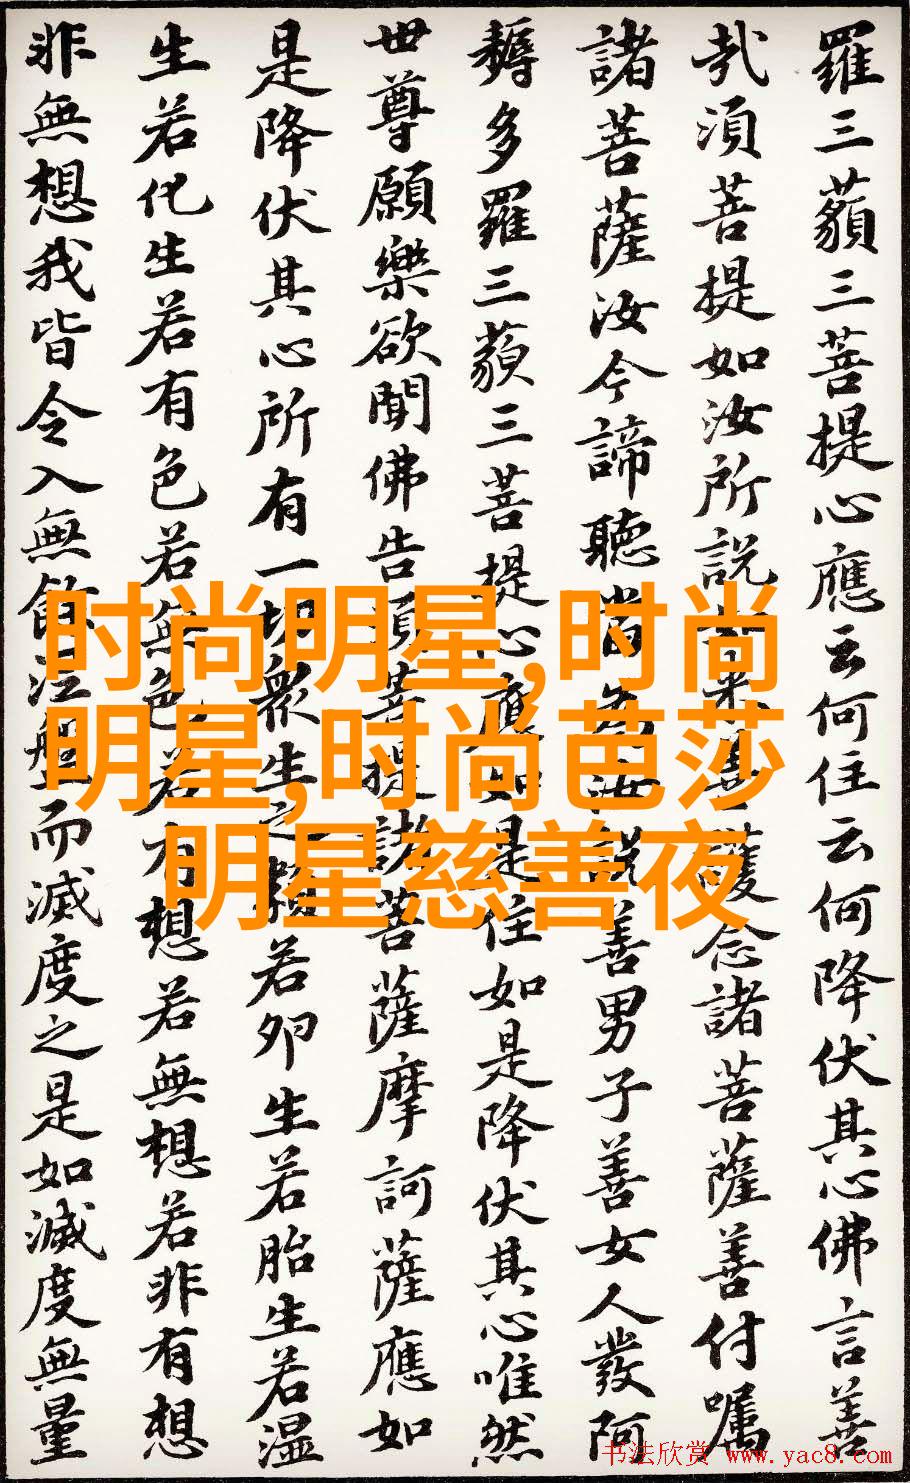 羅三藐三菩提心應云何住云何降伏其心佛言善
哉須菩提如汝所說如来善護念諸菩薩善付嘱
諸菩薩汝今諦聽當為汝說善男子善女人發阿
耨多羅三藐三菩提心應如是住如是降伏其心唯然
世尊願樂欲聞佛告須菩提諸菩薩摩訶薩應如
是降伏其心所有一切眾生之類若卵生若胎生若湿
生若化生若有色若無色若有想若無想若非有想
非無想我皆令入無餘涅槃而滅度之是如滅度無量
时尚明星,时尚
明星,时尚芭莎
明星慈善夜
书法欣赏 www.yac8.com